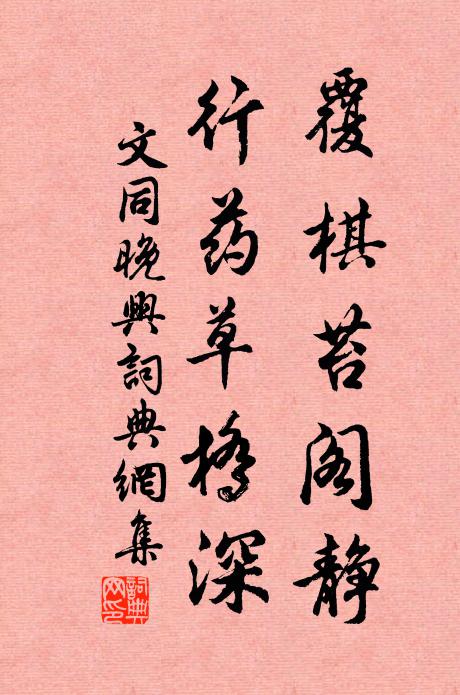 覆棋苔阁静
行药草桥深
文同晚興詞典網集
詞典網印